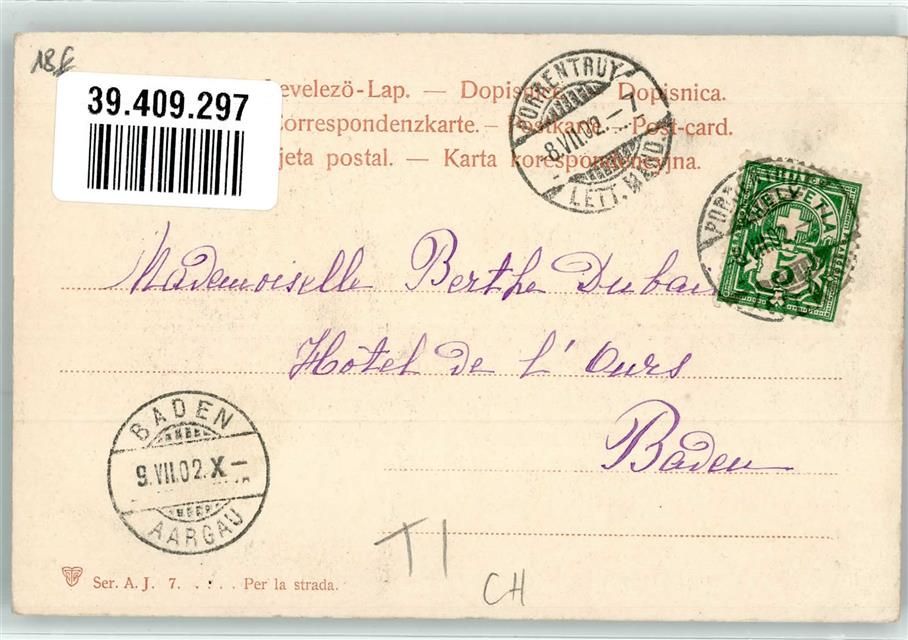 18£
39.409.297
evelezö-Lap. — Dopisnice. — Dopisnica.
Correspondenzkarte. — Postkarte. — Post-card.
jeta postal. — Karta korespondencyjna.
PORRENTRUY
8.VII.02.—7
LETT. MESS.
HELVETIA
Mademoiselle Berthe
Hôtel de l'Ours
Baden
BADEN
9.VII.02.X—
AARGAU
T1
CH
Ser. A. J. 7. . . . . Per la strada.